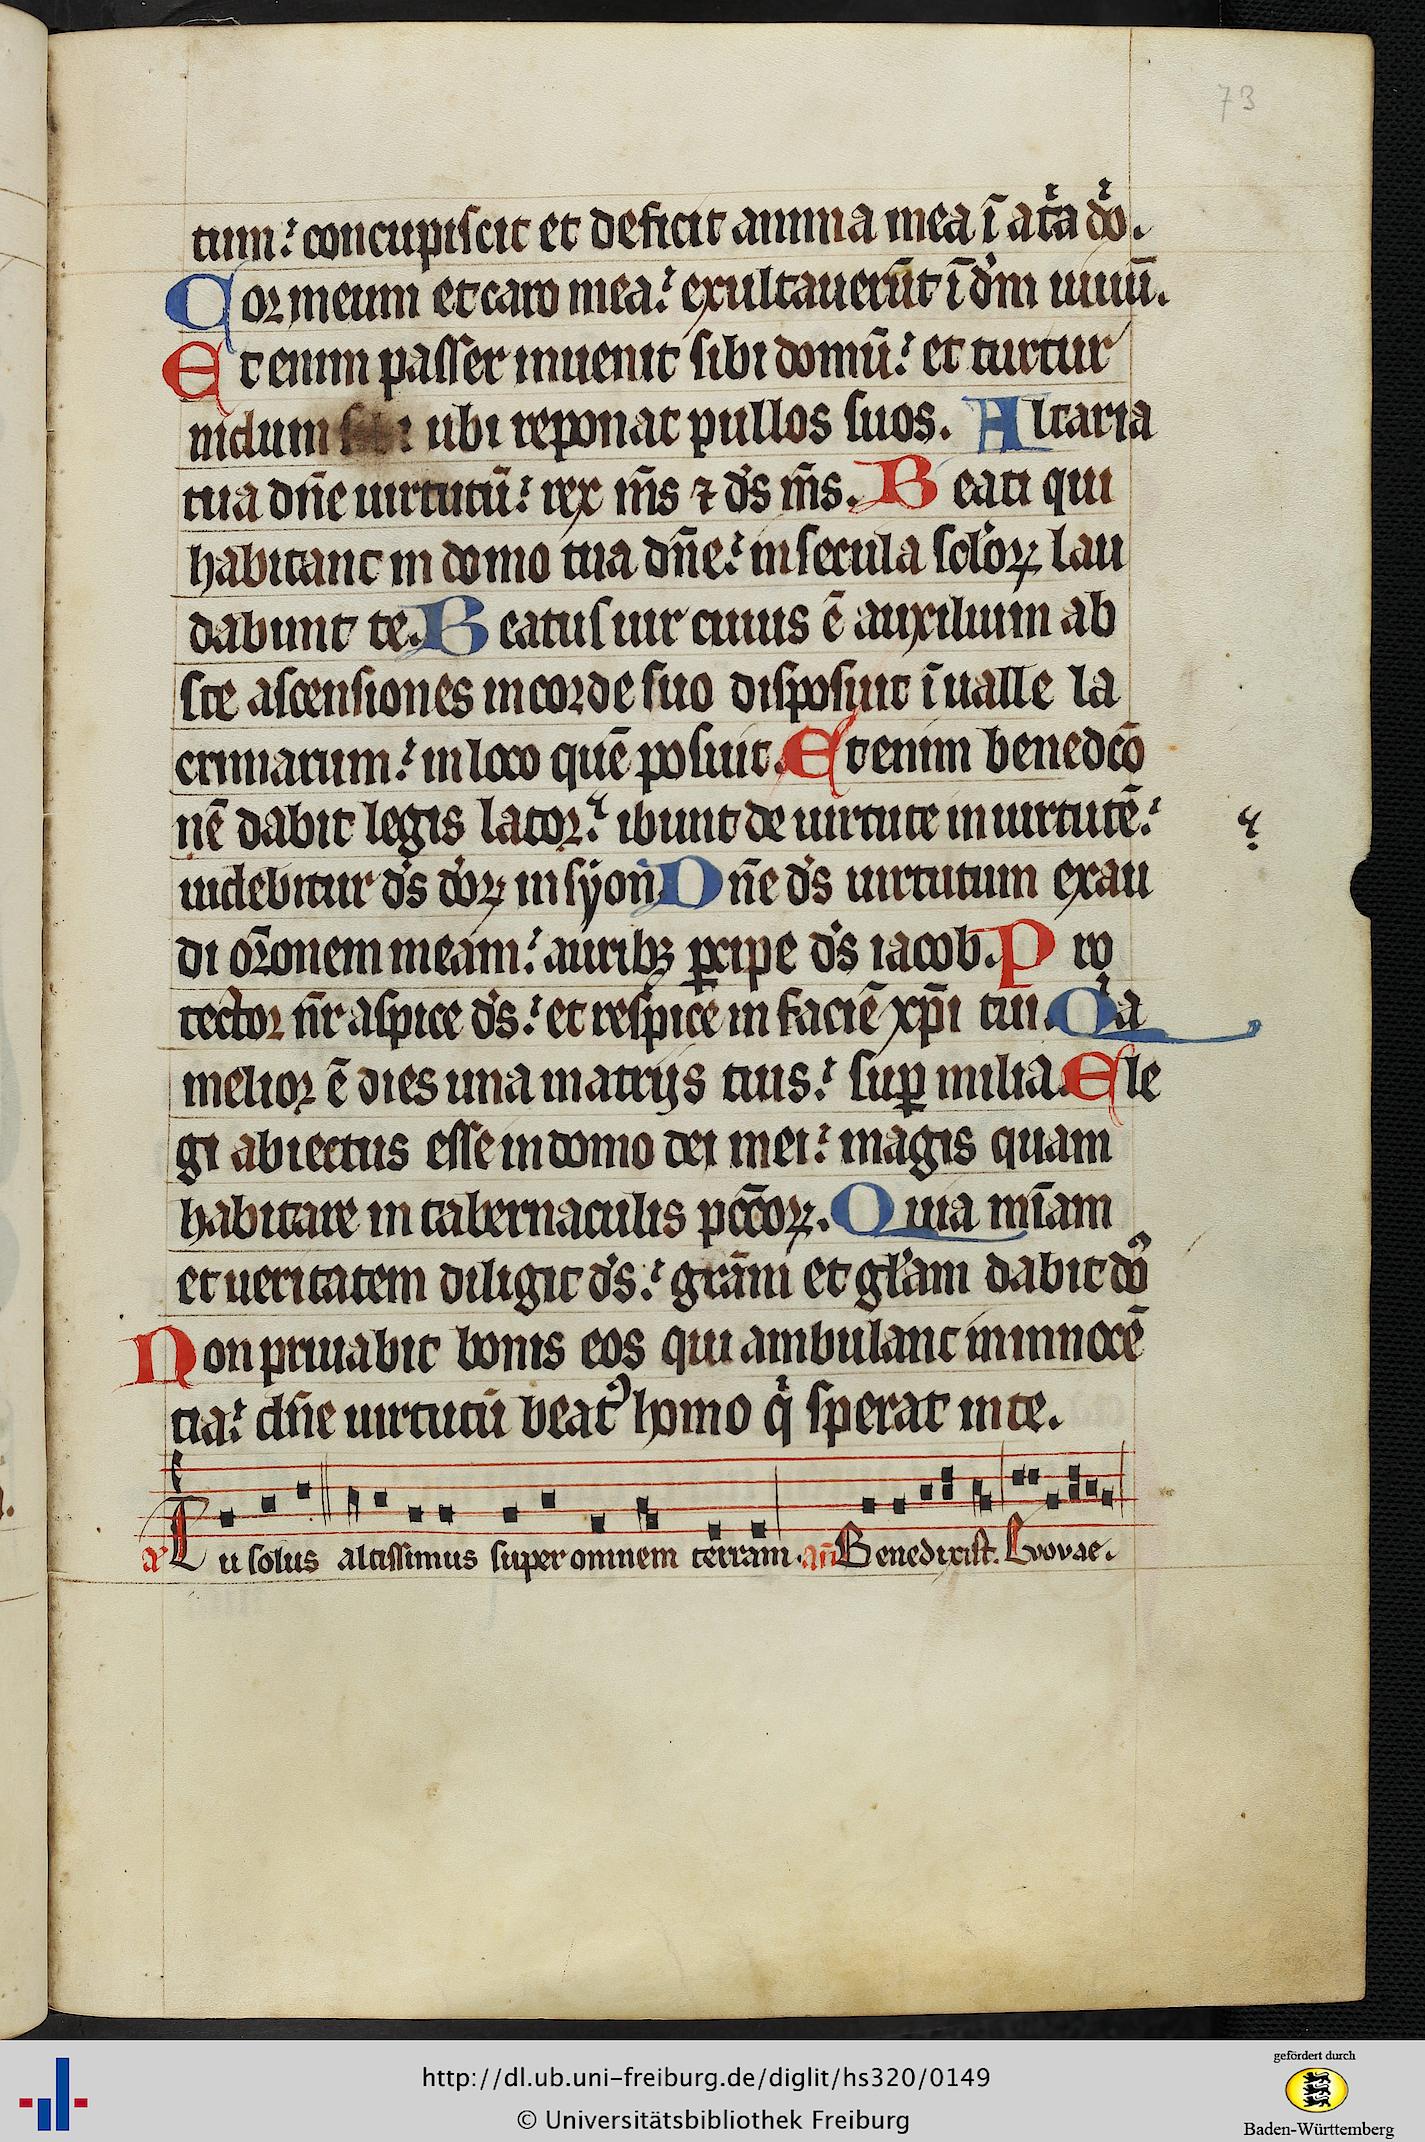 73
tum: concupiscit et deficit anima mea ī at᷑a do᷑.
Cor meum et caro mea: exultauerūt ī d̄m uiuū.
Et enim passer inuenit sibi domū: et turtur
nidum ubi reponat pullos suos. Altaria
tua dn̄e uirtutū: rex m̄s ⁊ d̄s m̄s. Beati qui
habitant in domo tua dn̄e: in secula scl̓oꝝ lau
dabunt te. Beatus uir cuius ē auxilium ab
ste ascensiones in corde suo disposuit ī ualle la
crimarum: in loco quē posuit. Etenim benedcō
nē dabit legis lator: ibunt de uirtute in uirtutē:
uidebitur d̄s do᷑ꝝ in syon̄ Dn̄e d̄s uirtutum exau
di or̄onem meam: auribꝫ ꝑcipe d̄s iacob. Pro
tector n̄r aspice d̄s: et respice in faciē xp̄i tui. Qͥa
melior ē dies una in atrijs tuis: suꝑ milia. Ele
gi abiectus esse in domo dei mei: magis quam
habitare in tabernaculis pcc̄oꝝ. Quia mīam
et ueritatem diligit d̄s: grām et gl̓am dabit doꝰ
Non priuabit bonis eos qui ambulant in innocē
tia: dn̄e uirtutū beatꝰ homo qͥ sperat in te.
a᷑ Tu solus altissimus super omnem terram. an̄ Benedixist. Evovae.
http://dl.ub.uni-freiburg.de/diglit/hs320/0149
© Universitätsbibliothek Freiburg
gefördert durch
Baden-Württemberg